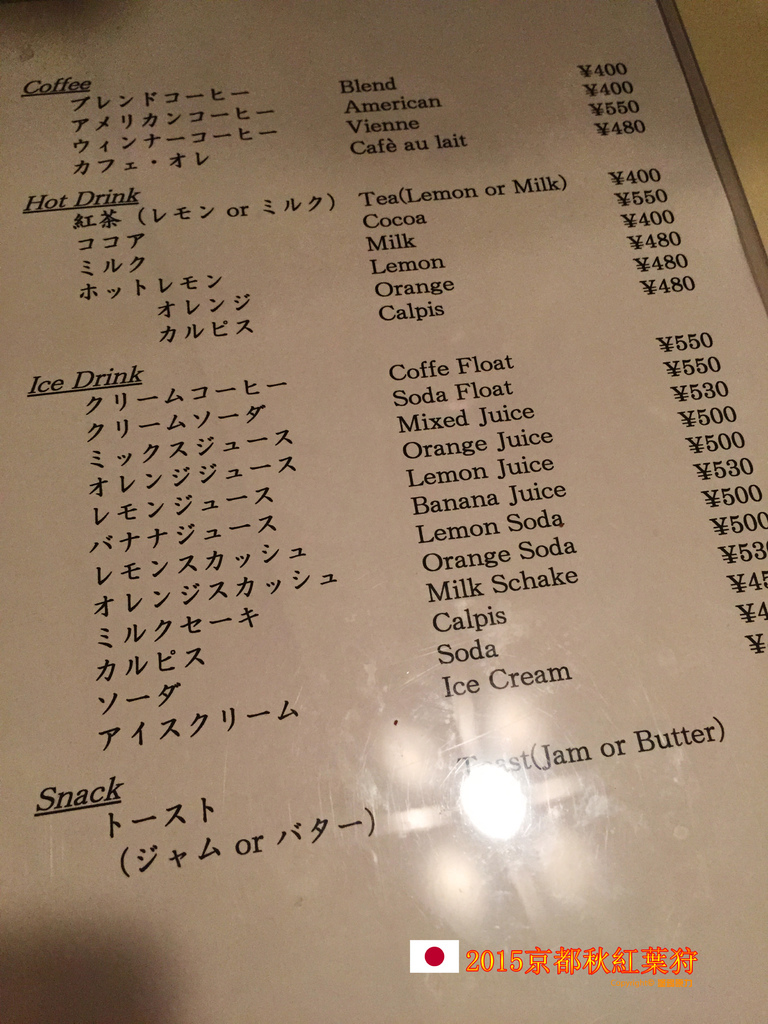 Coffee
ブレンドコーヒー Blend ¥400
アメリカンコーヒー American ¥400
ウィンナーコーヒー Vienne ¥550
カフェ・オレ Cafè au lait ¥480
Hot Drink
紅茶（レモン or ミルク） Tea(Lemon or Milk) ¥400
ココア Cocoa ¥550
ミルク Milk ¥400
ホットレモン Lemon ¥480
オレンジ Orange ¥480
カルピス Calpis ¥480
Ice Drink
クリームコーヒー Coffe Float ¥550
クリームソーダ Soda Float ¥550
ミックスジュース Mixed Juice ¥530
オレンジジュース Orange Juice ¥500
レモンジュース Lemon Juice ¥500
バナナジュース Banana Juice ¥530
レモンスカッシュ Lemon Soda ¥500
オレンジスカッシュ Orange Soda ¥500
ミルクセーキ Milk Schake ¥530
カルピス Calpis
ソーダ Soda
アイスクリーム Ice Cream
Snack
トースト Toast(Jam or Butter)
（ジャム or バター）
2015京都秋紅葉狩